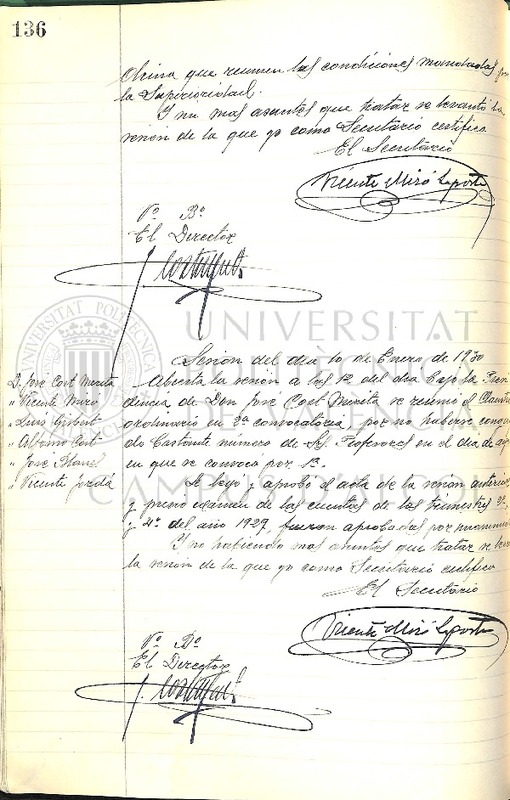 136
que reunen las condiciones
la Superioridad.
Y no mas asuntos que tratar se levantó la
sesion de la que yo como Secretario certifico
El Secretario
Vicente Miró Laporta
Vº Bº
El Director
UNIVERSITAT
POLITÈCNICA
DE VALÈNCIA
CAMPUS D'ALCOI
Sesion del dia 10 de Enero de 1930
D. Jose Cort Merita
" Vicente Miró
" Luis Gisbert
" Albino Cort
" Jose
" Vicente Jordá
Abierta la sesion a las 12 del dia bajo la
dencia de Don Jose Cort Merita se reunió el Claustro
ordinario en 2ª convocatoria, por no haberse
do bastante número de Sres Profesores en el dia de
en que se convocó por 1ª.
Se leyó y aprobó el acta de la sesion anterior
y previo exámen de las cuentas de los trimestres 3º
y 4º del año 1929, fueron aprobadas por
Y no habiendo mas asuntos que tratar se
la sesion de la que yo como Secretario certifico
El Secretario
Vicente Miró Laporta
Vº Bº
El Director